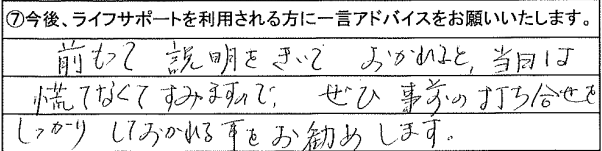 ⑦今後、ライフサポートを利用される方に一言アドバイスをお願いいたします。
前もって説明をきいておかれると、当日は
慌てなくてすみますので、ぜひ事前の打ち合せを
しっかりしておかれる事をお勧めします。